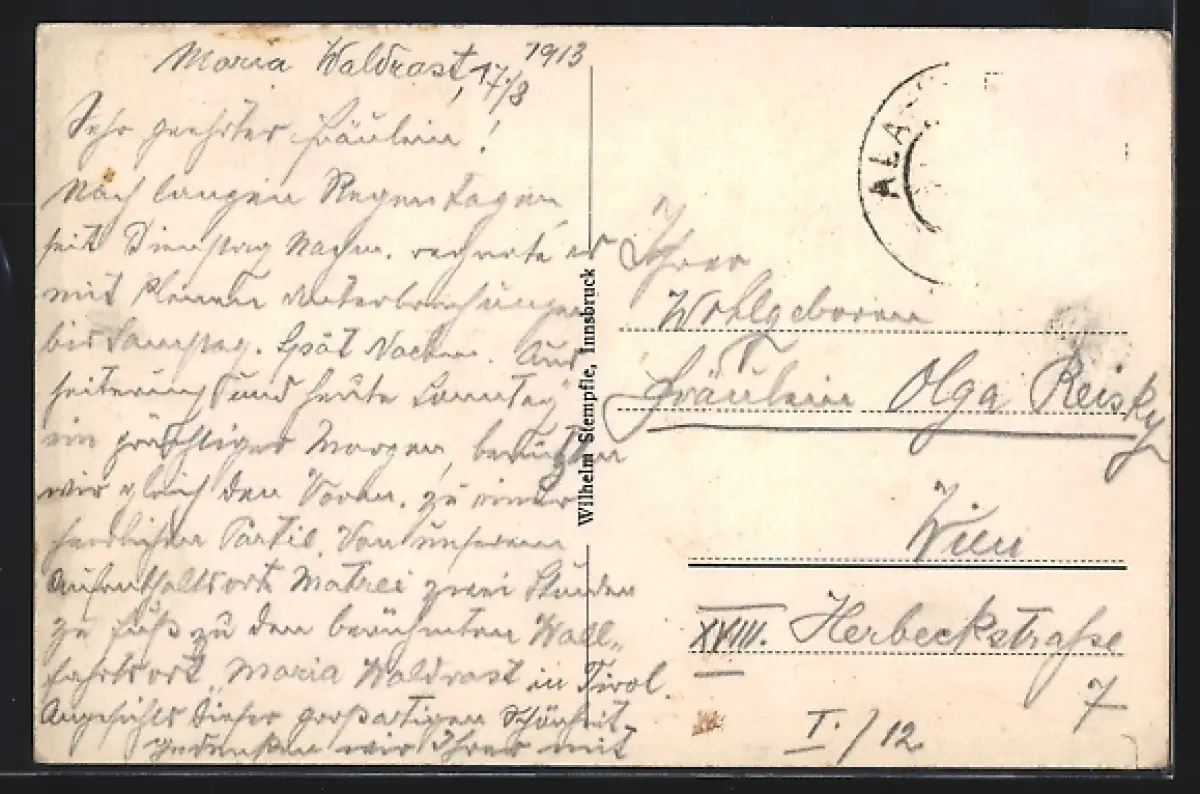 Maria Waldrast, 17/8 1913
Sehr geehrtes Fräulein!
Nach langen Regentagen,
seit Dienstag Nachm. regnete es
mit kleinen Unterbrechungen
bis Samstag. Spät Nachm. Aus
heiterung und heute Sonntag
ein prächtiger Morgen, benützten
wir gleich den Vorm. zu einer
herrlichen Partie. Von unserem
Aufenthaltsort Matrei zwei Stunden
zu Fuß zu dem berühmten Wall„
fahrtsort „Maria Waldrast in Tirol.
Angesichts dieser großartigen Schönheit
gedenken wir Ihrer mit
Wilhelm Stempfle, Innsbruck
ALA
Ihrer
Wohlgeboren
Fräulein Olga Reisky
Wien
XVIII. Herbeckstraße
7
I./12